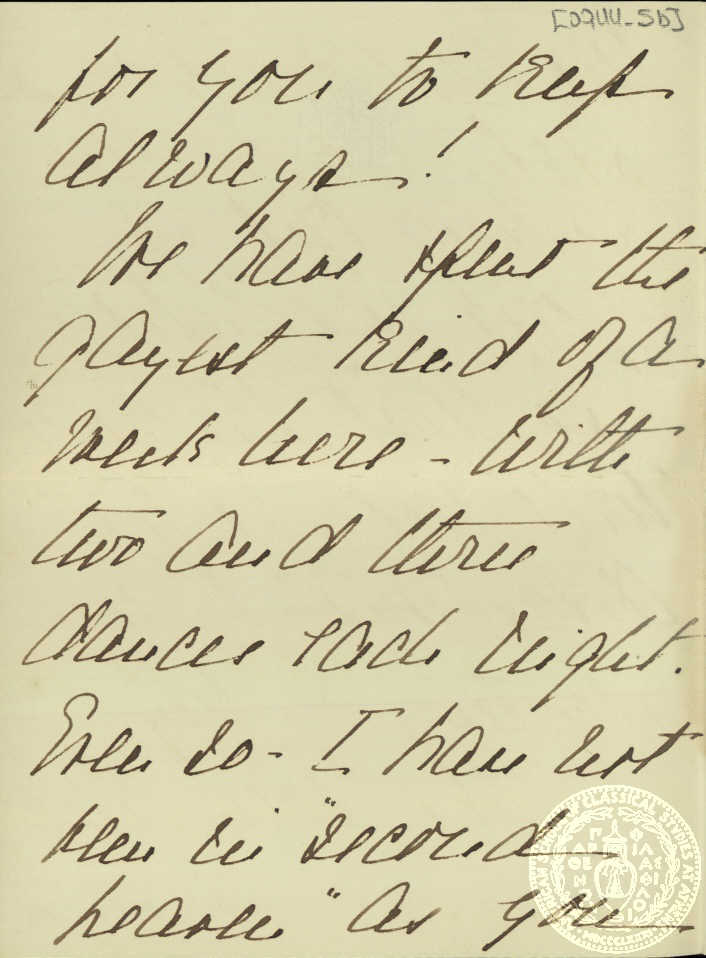 [0944-5b]
for you to keep
always!
We have spent the
gayest kind of a
week here - with
two and three
dances each night.
Even so - I have not
been in "second
heaven" as you
AMERICAN SCHOOL OF CLASSICAL STUDIES AT ATHENS
MDCCCLXXXI